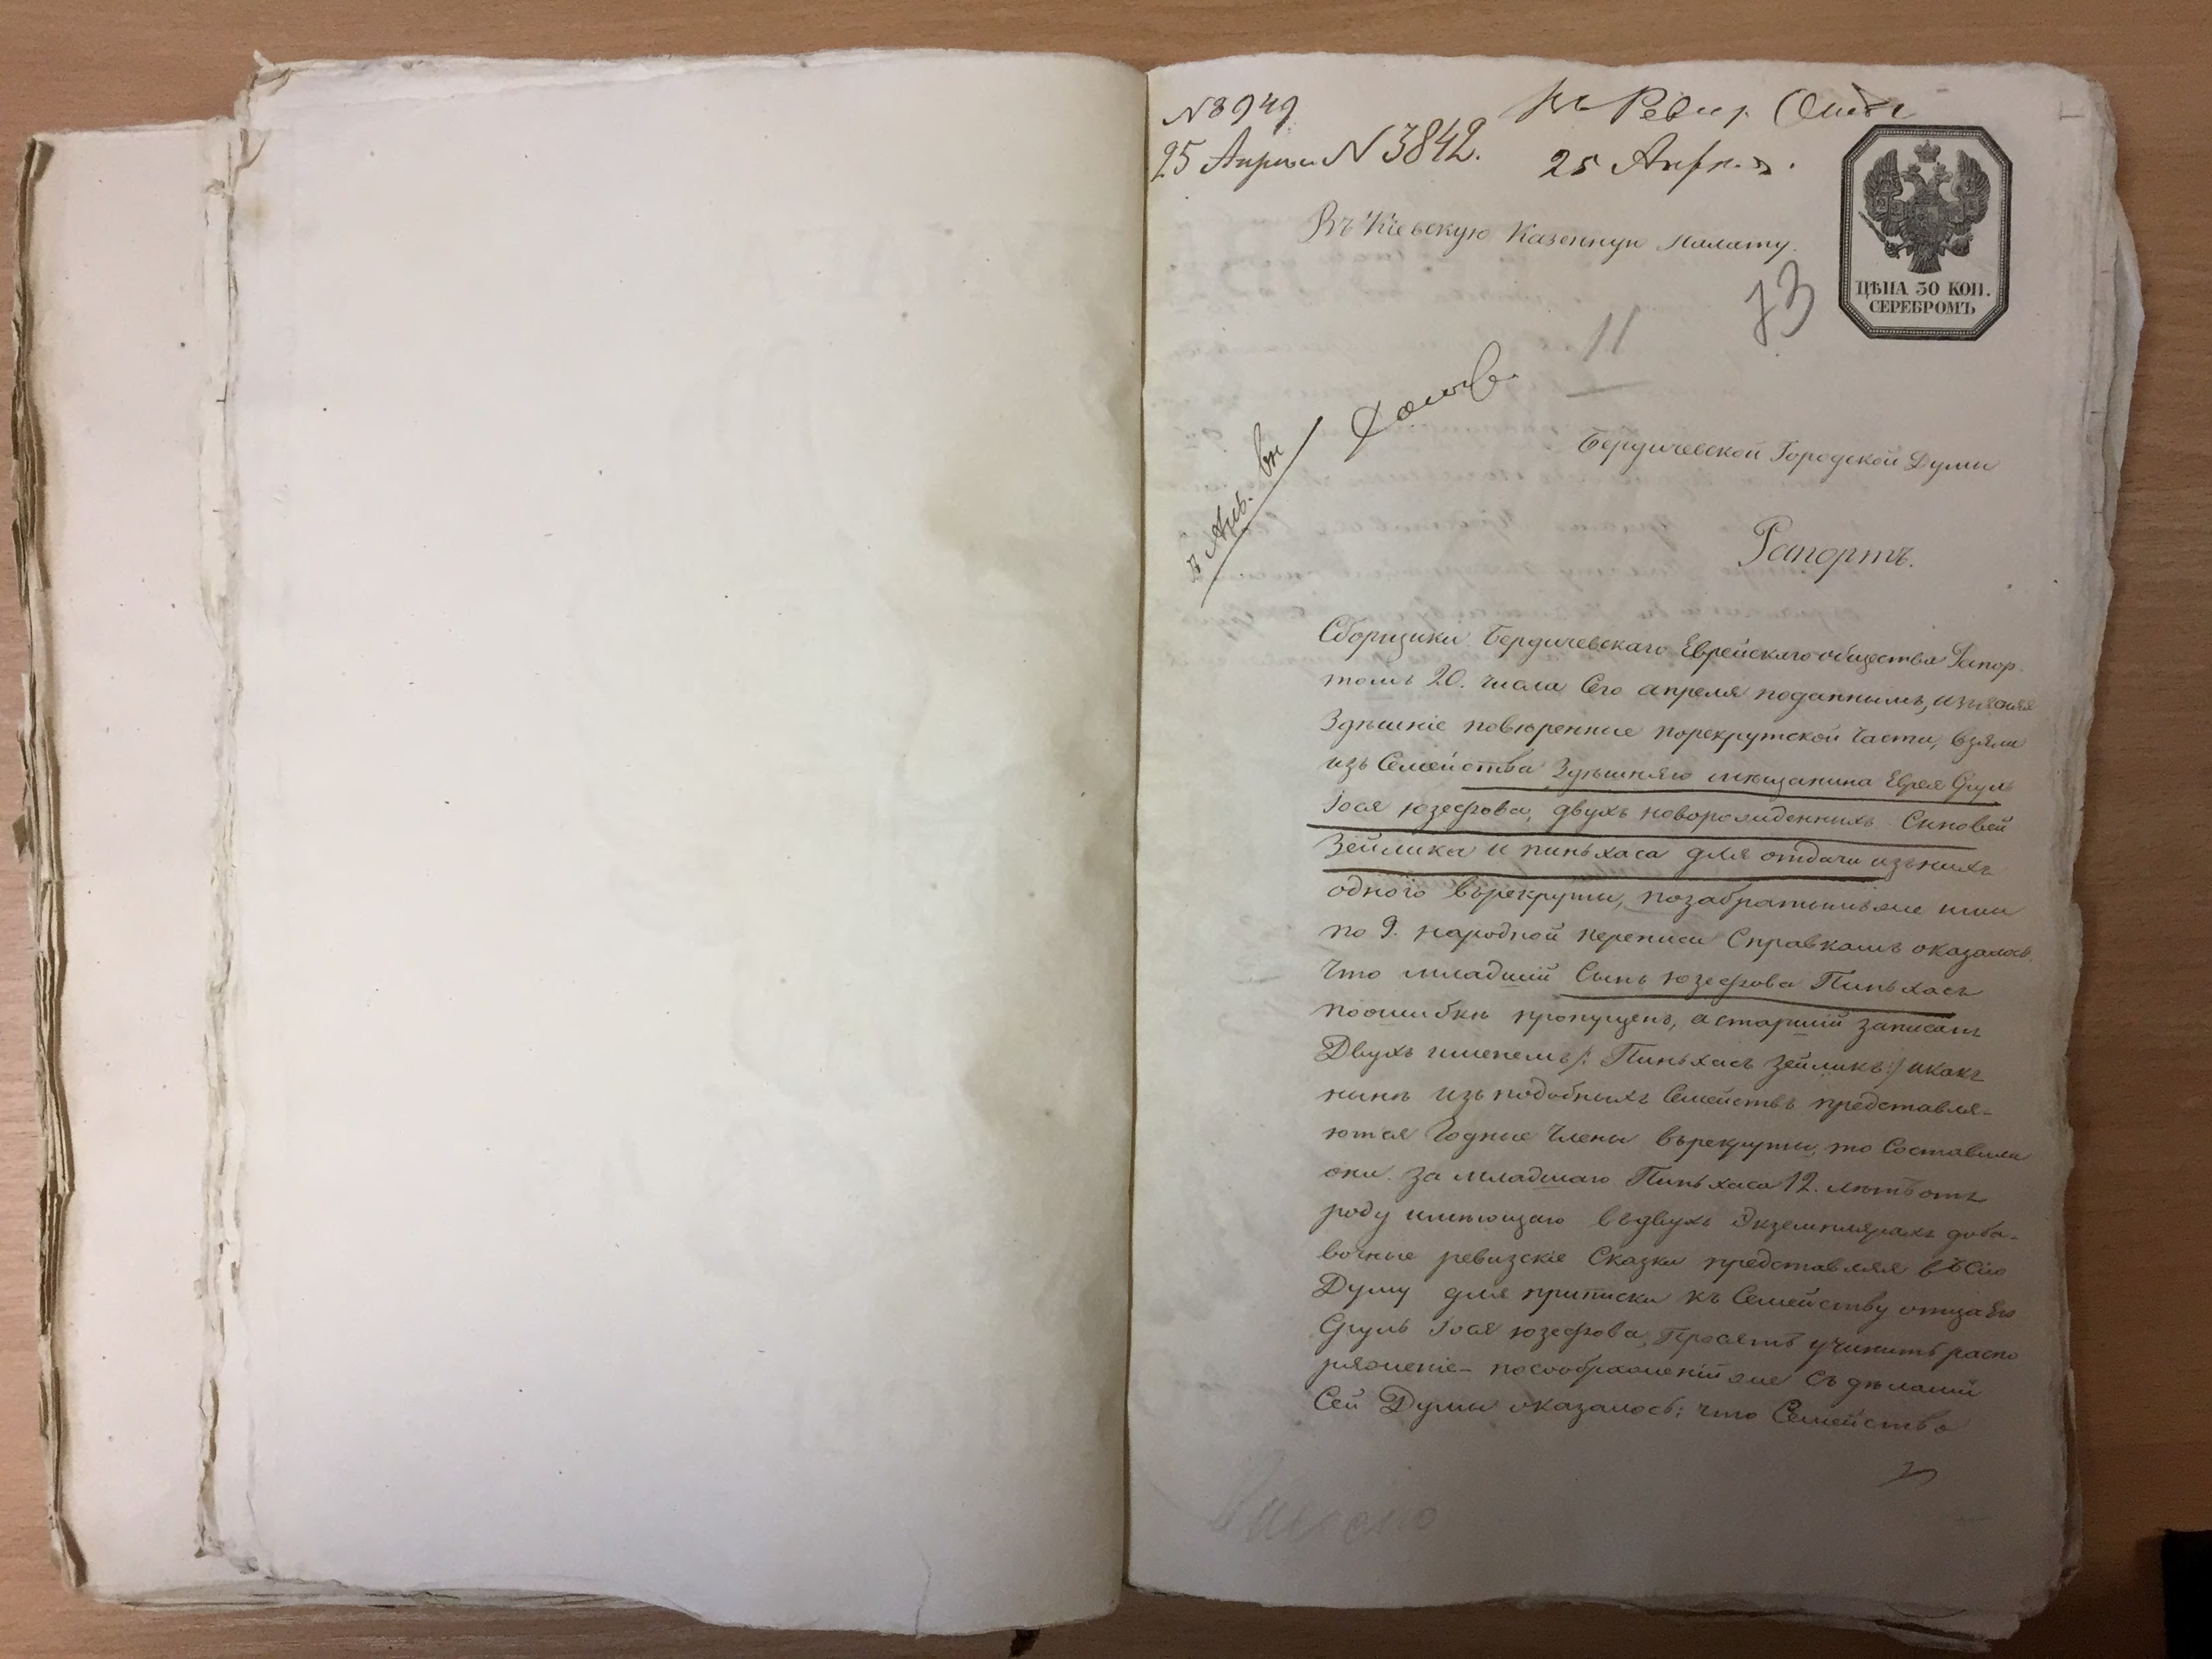 № 8949
25 Апреля № 3842.
25 Апреля.
Въ Кіевскую Казенную Палату.
ЦѢНА 30 КОП.
СЕРЕБРОМЪ
73
11
Бердичевской Городской Думы
Рапортъ.
Сборщики Бердичевскаго Еврейскаго общества Рапор-
томъ 20. числа Сего апреля поданнымъ, изъясняя
Здѣшніе повѣренные порекрутской части, взяли
изъ Семейства Здѣшняго мещанина Еврея Сруль
Іося Юзефова, двухъ новорожденныхъ Сыновей
Зейлика и Пиньхаса для отдачи изъ нихъ
одного върекруты, позабратымъ же ими
по 9. народной переписи Справкамъ оказалось
Что младшій Сынъ Юзефова Пиньхасъ
поошибкѣ пропущенъ, а старшій записанъ
Двухъ именемъ /: Пиньхасъ Зейликъ :/ икакъ
нынѣ изъ подобныхъ Семействъ представля-
ются Годные Члены върекруты, то Составили
они за младшаго Пиньхаса 12. лѣтъ отъ
роду имѣющаго въдвухъ Экземплярахъ доба-
вочные ревизскіе Сказки представляя въ Сію
Думу для приписки къ Семейству отца Его
Сруль Іося Юзефова, Просятъ учинить распо
ряженіе – посоображеній же съ дѣлами
Сей Думы оказалось: что Семейство